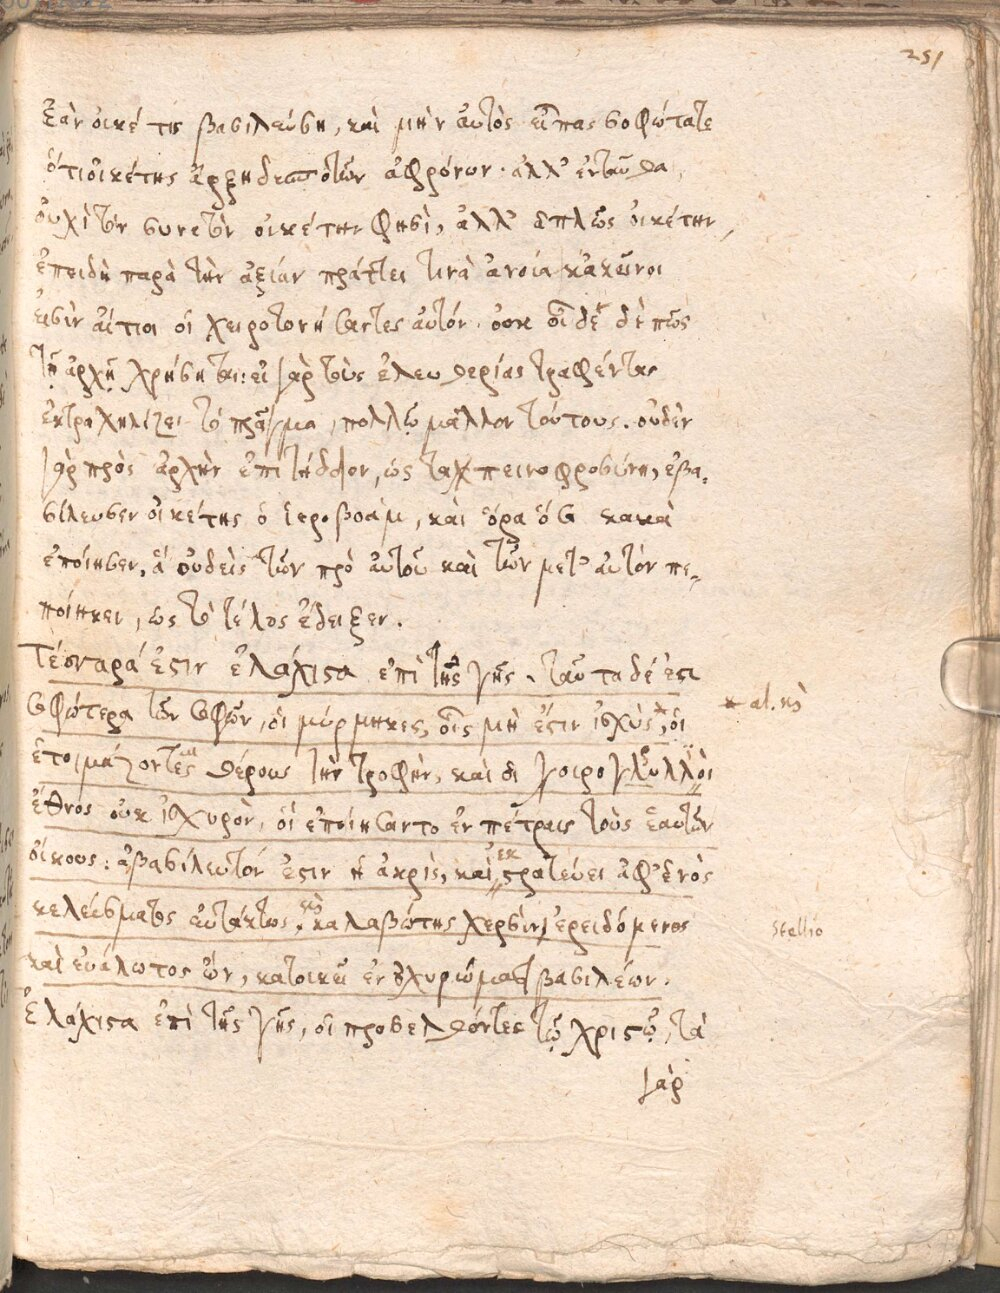 251
Ἐὰν οἰκέτης βασιλεύσῃ, καὶ μὴν αὐτὸς εἶπας σοφώτατε
ὅτι οἰκέτης ἄρξη δεσποτῶν ἀφρόνων· ἀλλ' ἐνταῦθα,
οὐχὶ τὸν συνετὸν οἰκέτην φησὶ, ἀλλ' ἁπλῶς οἰκέτην,
ἐπειδὴ παρὰ τὴν ἀξίαν πράττει τινὰ ἀνοία κἀκεῖνοι
εἰσὶν αἴτιοι οἱ χειροτονήσαντες αὐτόν. οὐκ οἶδε δὲ πῶς
τῇ ἀρχῇ χρήσηται: εἰ γὰρ τοὺς ἐλευθερίας τραφέντας
ἐκτραχηλίζει τὸ πρᾶγμα, πολλῷ μᾶλλον τούτους. οὐδὲν
γὰρ πρὸς ἀρχὴν ἐπιτήδειον, ὡς ταπεινοφροσύνη, ἐβα-
σίλευσεν οἰκέτης ὁ ἱεροβοὰμ, καὶ ὅρα ὅσα κακὰ
ἐποίησεν, ἃ οὐδεὶς τῶν πρὸ αὐτοῦ καὶ τῶν μετ' αὐτὸν πε-
ποίηκει, ὡς τὸ τέλος ἔδειξεν.
Τέσσαρά ἐστιν ἐλάχιστα ἐπὶ τῆς γῆς. ταῦτα δέ ἐστι
σοφώτερα τῶν σοφῶν, οἱ μύρμηκες, οἷς μὴ ἔστιν ἰσχὺς*, οἱ
* al. καὶ
ἑτοιμάζοντες θέρους τὴν τροφὴν, καὶ οἱ χοιρογλύλλιοι
ἔθνος οὐκ ἰσχυρὸν, οἱ ἐποιήσαντο ἐν πέτραις τοὺς ἑαυτῶν
οἴκους: ἀβασίλευτόν ἐστιν ἡ ἀκρὶς, καὶ ἐκστρατεύει ἀφ' ἑνὸς
κελεύσματος εὐτάκτως. καὶ καλαβώτης χερσὶν ἐρειδόμενος
stellio
καὶ εὐάλωτος ὢν, κατοικεῖ ἐν ὀχυρώμασι βασιλέων.
Ἐλάχιστα ἐπὶ τῆς γῆς, οἱ προσελθόντες τῷ χριστῷ, τὰ
γὰρ